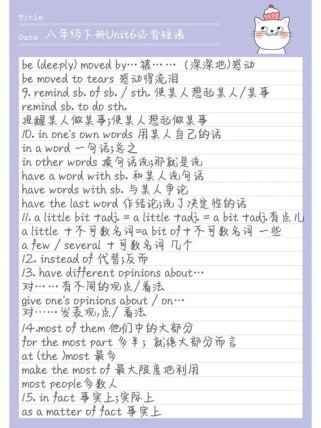 Title
Date 八年级下册Unit6必背短语
be (deeply) moved by… 被……(深深地)感动
be moved to tears 感动得流泪
9. remind sb. of sb. / sth. 使某人想起某人/某事
remind sb. to do sth.
提醒某人做某事;使某人想起做某事
10. in one's own words 用某人自己的话
in a word 一句话;总之
in other words 换句话说;那就是说
have a word with sb. 和某人说句话
have words with sb. 与某人争论
have the last word 作结论;说了决定性的话
11. a little bit +adj. = a little +adj. = a bit +adj.有点儿
a little +不可数名词=a bit of+不可数名词 一些
a few / several +可数名词 几个
12. instead of 代替;反而
13. have different opinions about…
对……有不同的观点/看法
give one's opinions about / on…
对……发表观点/看法
14.most of them 他们中的大部分
for the most part 多半;就绝大部分而言
at (the )most 最多
make the most of 最大限度地利用
most people多数人
15. in fact 事实上;实际上
as a matter of fact 事实上